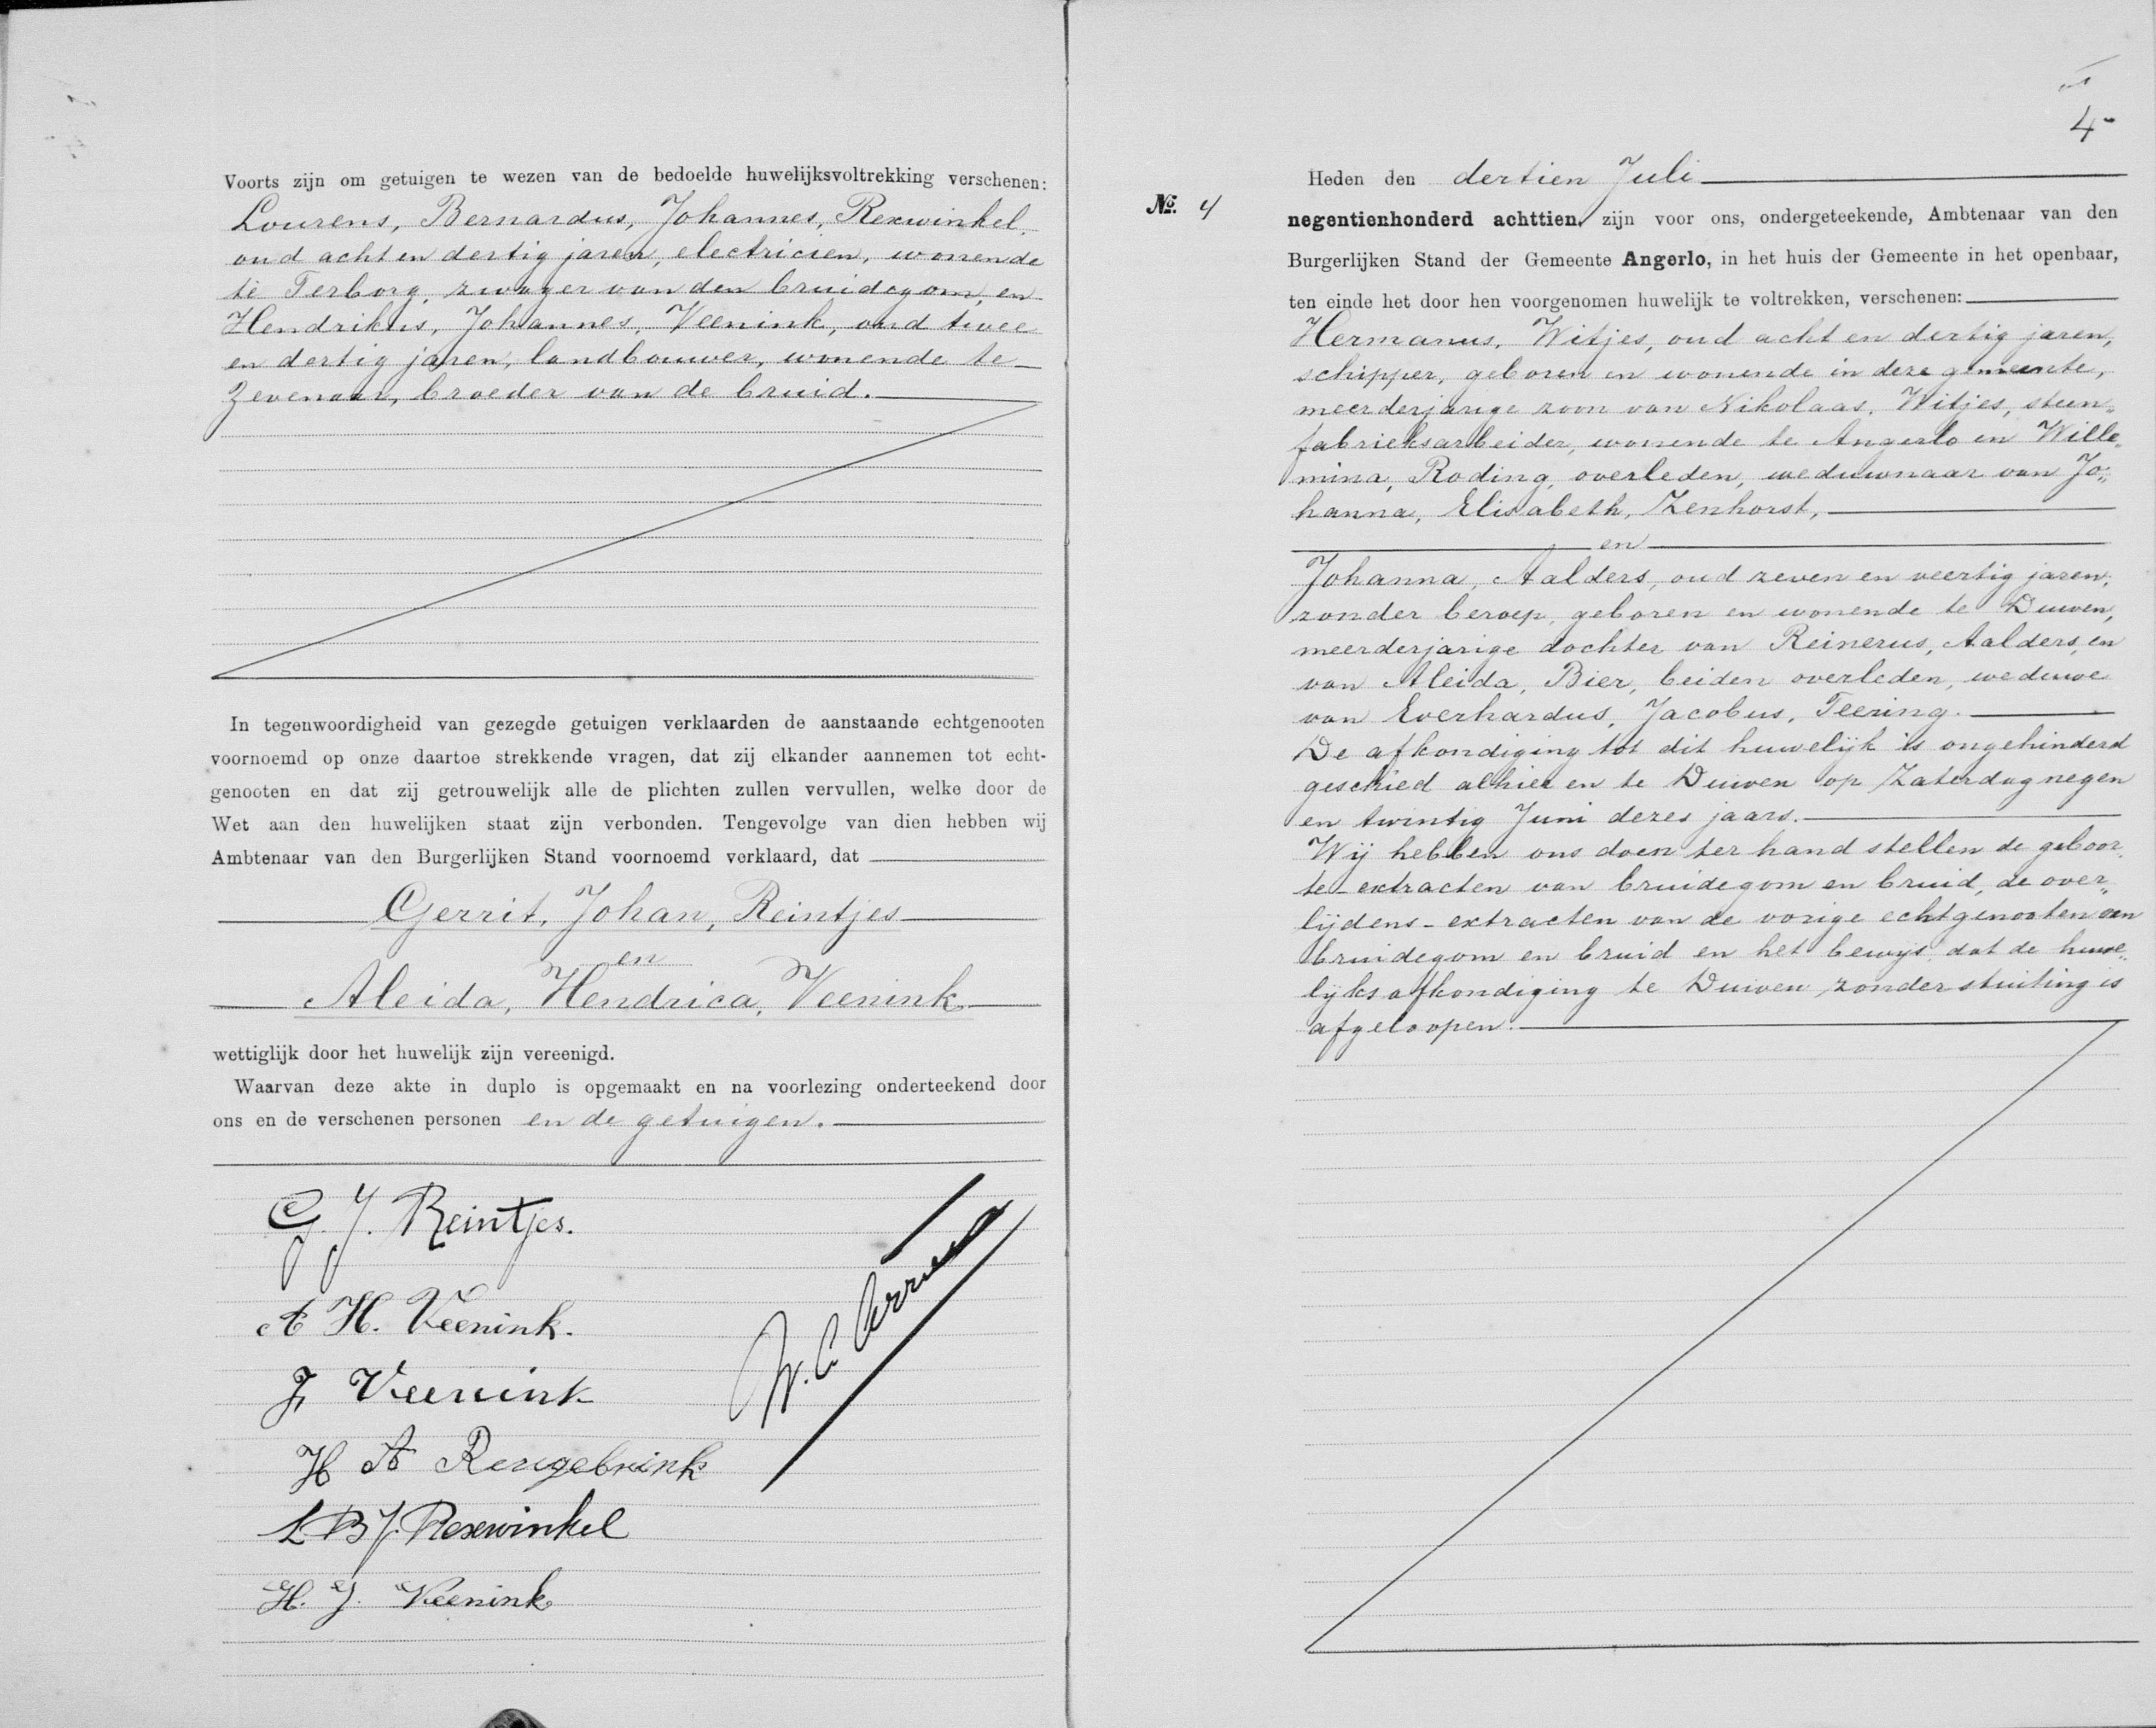 Voorts zijn om getuigen te wezen van de bedoelde huwelijksvoltrekking verschenen:
Lourens, Bernardus, Johannes, Rexwinkel,
oud acht en dertig jaren, electricien, wonende
te Terborg, zwager van den bruidegom, en
Hendrikus, Johannes, Veenink, oud twee
en dertig jaren, landbouwer, wonende te
Zevenaar, broeder van de bruid.
In tegenwoordigheid van gezegde getuigen verklaarden de aanstaande echtgenooten
voornoemd op onze daartoe strekkende vragen, dat zij elkander aannemen tot echt-
genooten en dat zij getrouwelijk alle de plichten zullen vervullen, welke door de
Wet aan den huwelijken staat zijn verbonden. Tengevolge van dien hebben wij
Ambtenaar van den Burgerlijken Stand voornoemd verklaard, dat
Gerrit, Johan, Reintjes
en
Aleida, Hendrica, Veenink
wettiglijk door het huwelijk zijn vereenigd.
Waarvan deze akte in duplo is opgemaakt en na voorlezing onderteekend door
ons en de verschenen personen en de getuigen.
G. J. Reintjes.
A H. Veenink.
J, Veenink
H A Rengebrink
L B J. Rexwinkel
H. J. Veenink
4
No. 4
Heden den dertien Juli
negentienhonderd achttien, zijn voor ons, ondergeteekende, Ambtenaar van den
Burgerlijken Stand der Gemeente Angerlo, in het huis der Gemeente in het openbaar,
ten einde het door hen voorgenomen huwelijk te voltrekken, verschenen:
Hermanus, Witjes, oud acht en dertig jaren,
schipper, geboren en wonende in deze gemeente,
meerderjarige zoon van Nikolaas, Witjes, steen„
fabrieksarbeider, wonende te Angerlo en Wille„
mina, Roding, overleden, weduwnaar van Jo„
hanna, Elisabeth, Zenhorst,
en
Johanna, Aalders, oud zeven en veertig jaren,
zonder beroep, geboren en wonende te Duiven,
meerderjarige dochter van Reinerus, Aalders, en
van Aleida, Bier, beiden overleden, weduwe
van Everhardus, Jacobus, Teering.
De afkondiging tot dit huwelijk is ongehinderd
geschied alhier en te Duiven op Zaterdag negen
en twintig Juni dezes jaars.
Wij hebben ons doen ter hand stellen de geboor„
te-extracten van bruidegom en bruid, de over„
lijdens-extracten van de vorige echtgenooten van
bruidegom en bruid en het bewijs, dat de huwe„
lijksafkondiging te Duiven zonder stuiting is
afgeloopen.